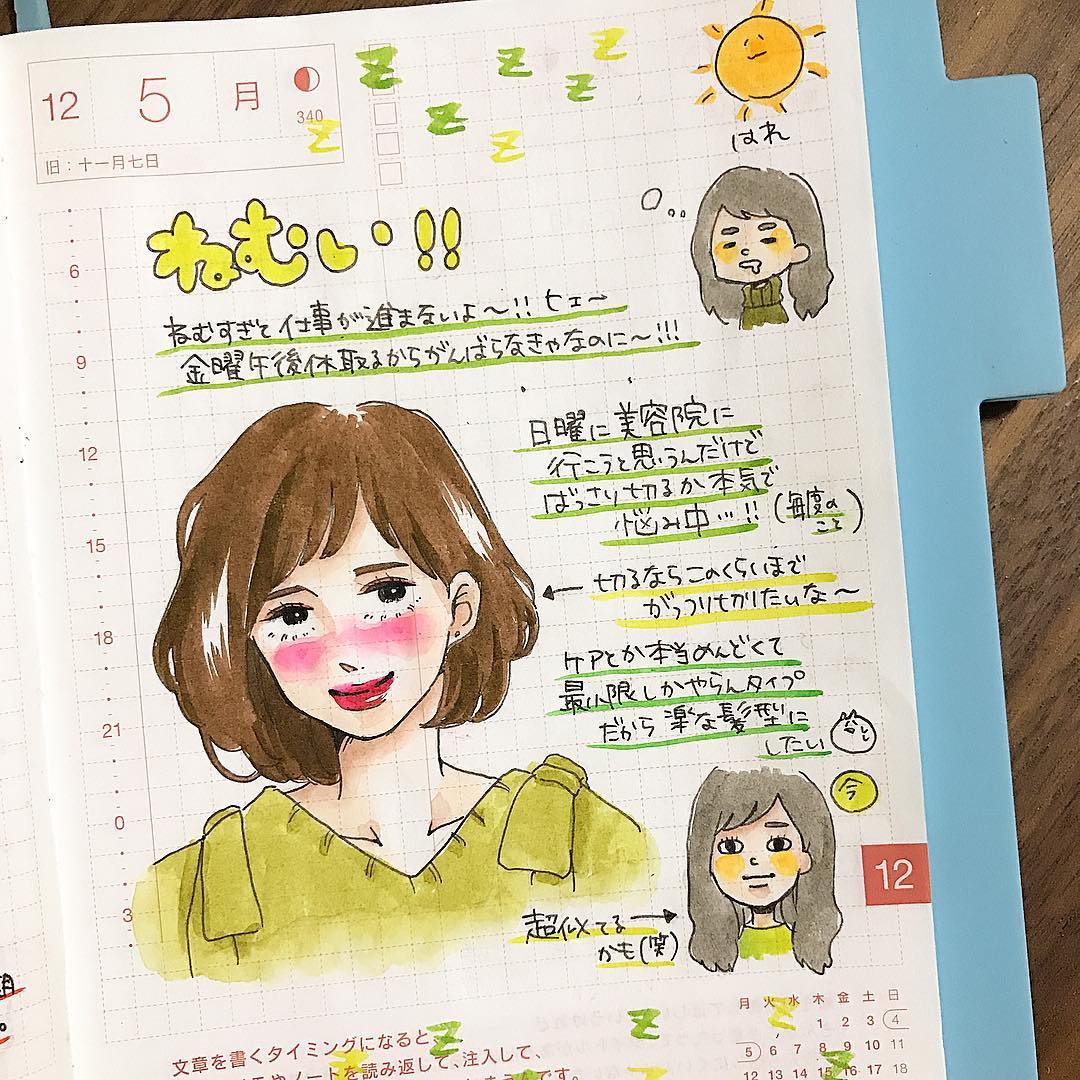 12 5 月
340
旧：十一月七日
Z Z Z Z Z Z Z
はれ
ねむい!!
ねむすぎて仕事が進まないよ〜!! ヒェ〜
金曜午後休取るからがんばらなきゃなのに〜!!!
日曜に美容院に
行こうと思うんだけど
ばっさり切るか本気で
悩み中…!! (毎度の
こと)
切るならこのくらいまで
がっつり切りたいな〜
ケアとか本当めんどくて
最小限しかやらんタイプ
だから楽な髪型に
したい
今
超似てる
かも(笑)
6
9
12
15
18
21
0
3
12
月 火 水 木 金 土 日
1 2 3 4
5 6 7 8 9 10 11
12 13 14 15 16 17 18
Z Z Z Z
文章を書くタイミングになると、
ノートを読み返して、注入して、